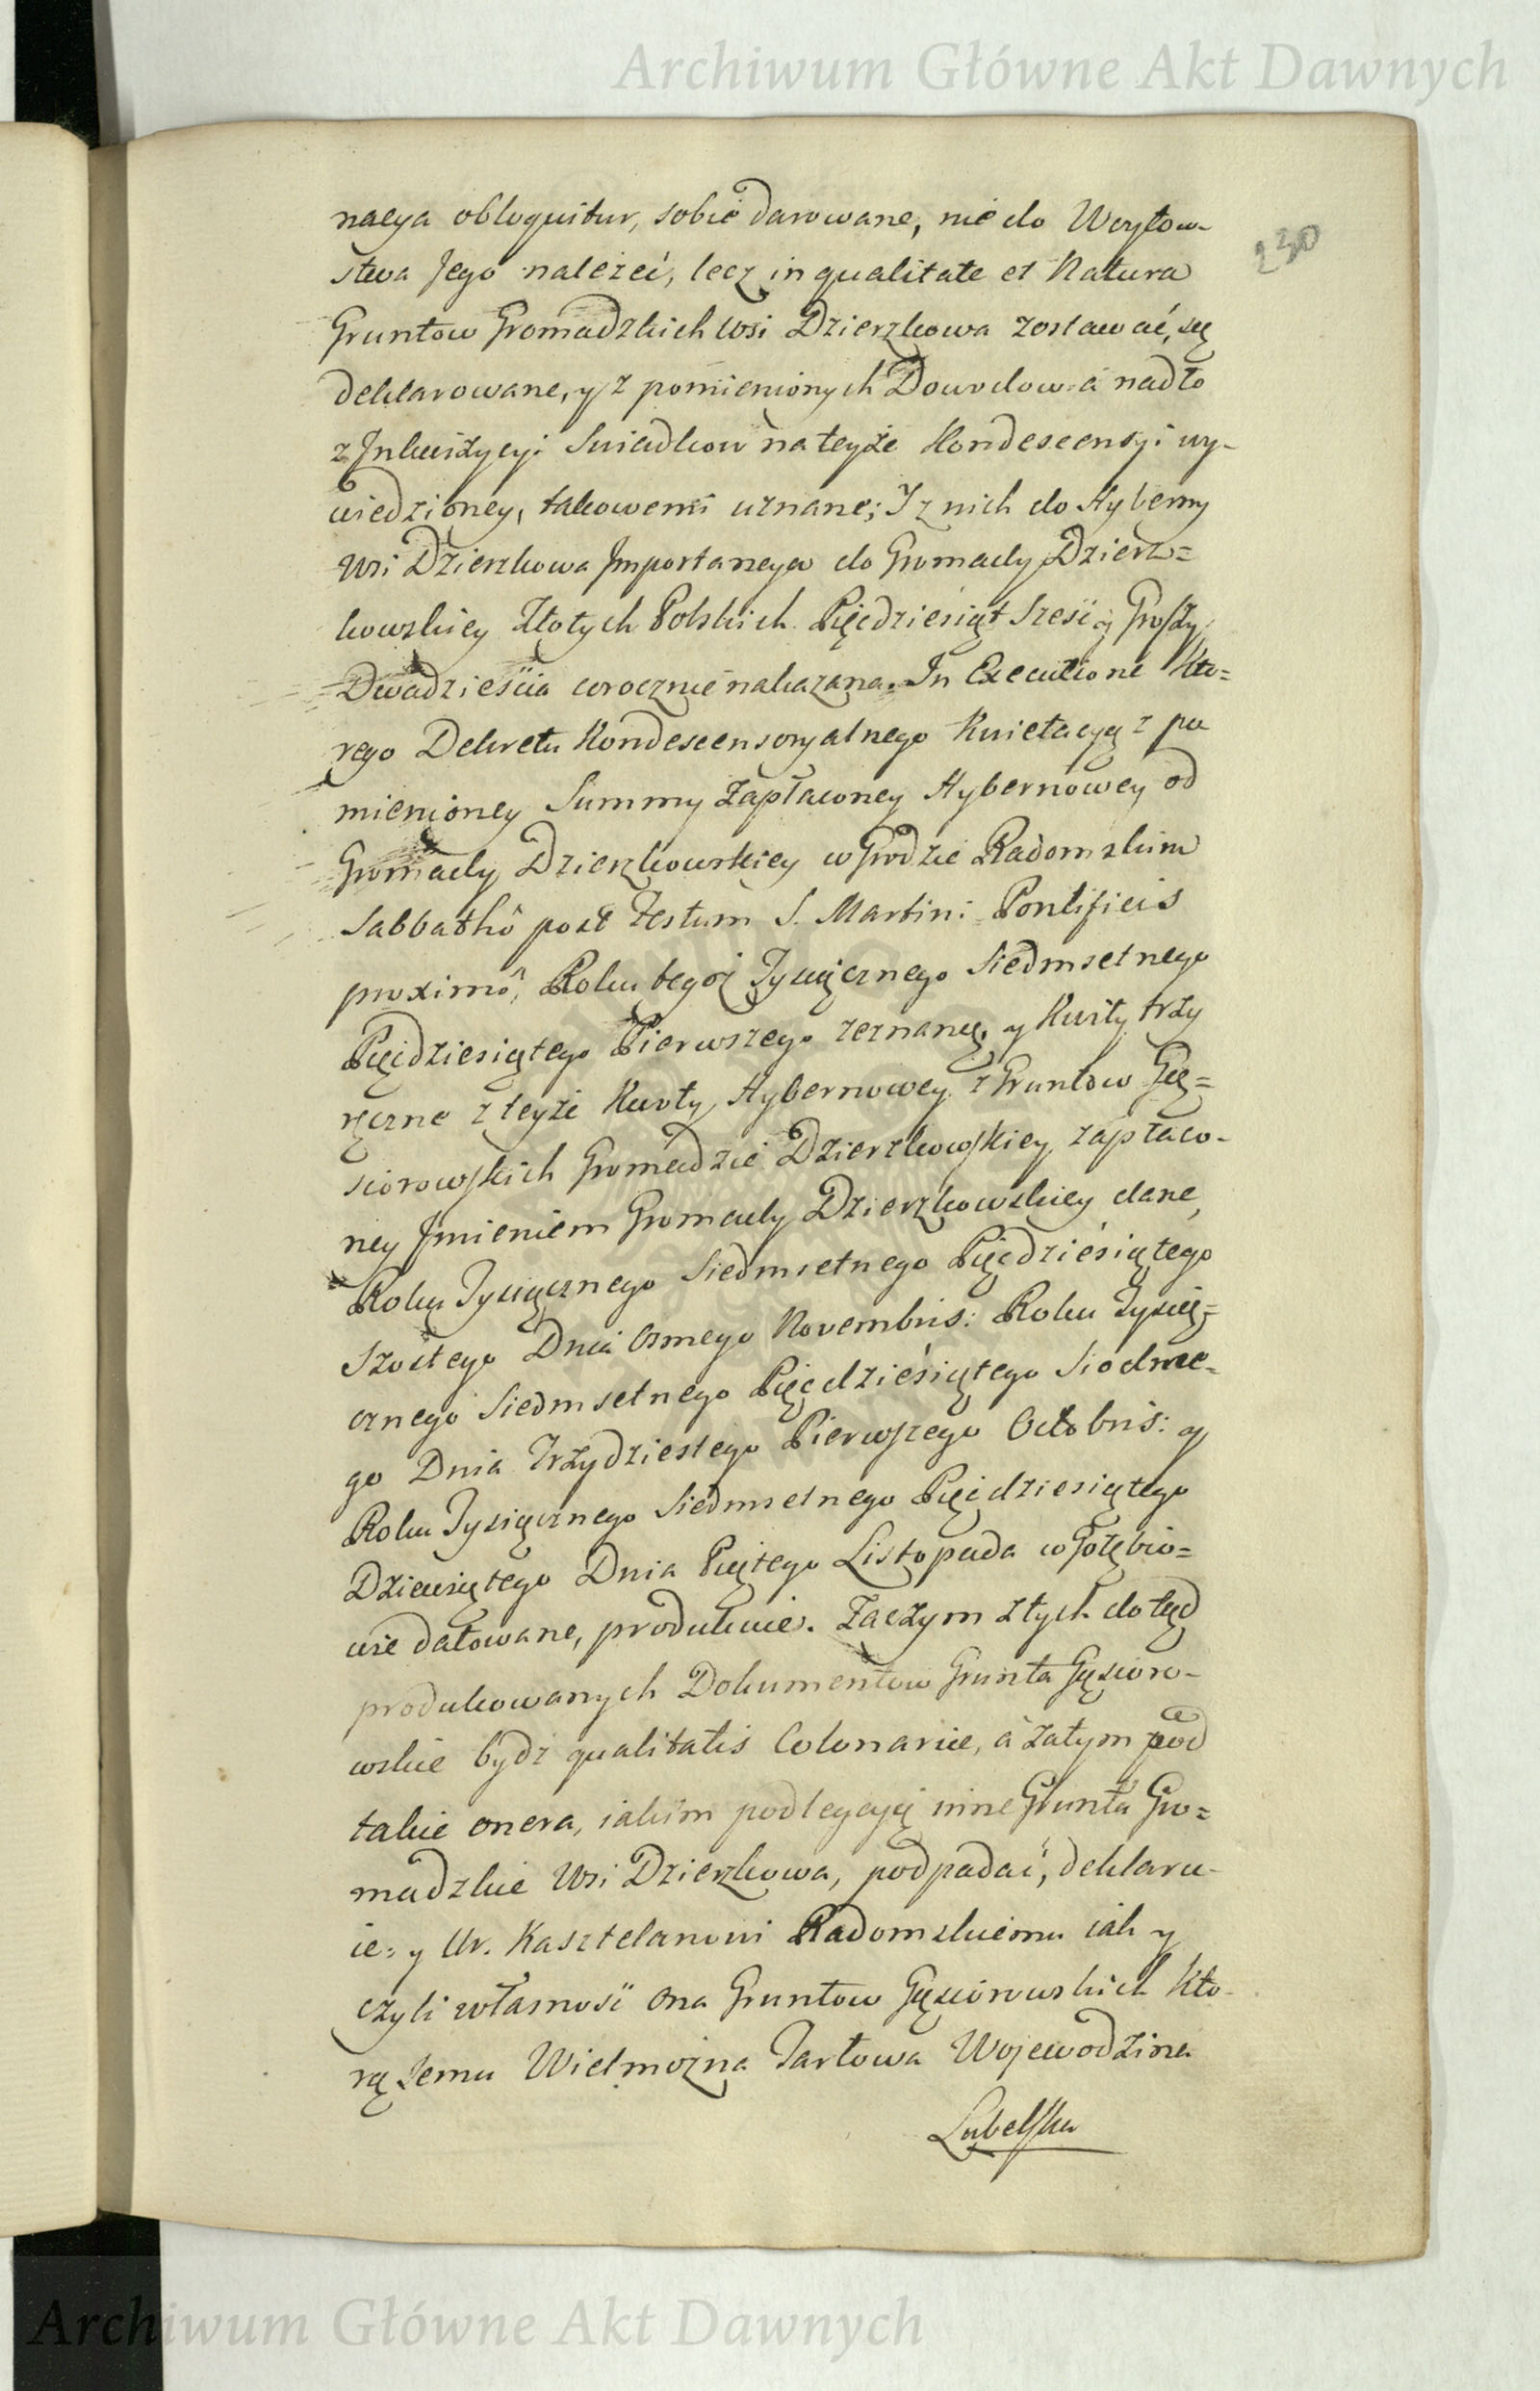 Archiwum Główne Akt Dawnych
230
nacya obloquitur, sobie darowane, nie do Woytow-
stwa Jego należeć, lecz in qualitate et Natura
Gruntow Gromadzkich Wsi Dzierzkowa zostawać, są
deklarowane, y z pomienionych Dowodow a nadto
z Inkwizycyi Swiadkow na teyże Kondescensyi wy-
wiedzioney, takowemi uznane; I z nich do Hyberny
Wsi Dzierzkowa Importancya do Gromady Dzierz=
kowskiey Złotych Polskich Pięćdziesiąt Sześć y Groszy
Dwadzieścia corocznie nakazana. In Executione Kto=
rego Dekretu Kondescensoryalnego Kwietacyą z po
mienioney Summy Zapłaconey Hybernowey od
Gromady Dzierzkowskiey w Grodzie Radomskim
Sabbathô post Festum S. Martini Pontificis
proximô, Roku tegoż Tysiącznego Siedmsetnego
Pięćdziesiątego Pierwszego zeznaną, y Kwity trzy
ręczne z teyże Kwoty Hybernowey z Gruntow Gę=
siorowskich Gromadzie Dzierzkowskiey zapłaco-
ney Imieniem Gromady Dzierzkowskiey dane,
Roku Tysiącznego Siedmsetnego Pięćdziesiątego
Szostego Dnia Osmego Novembris: Roku Tysią=
cznego Siedmsetnego Pięćdziesiątego Siodme-
go Dnia Trzydziestego Pierwszego Octobris: y
Roku Tysiącznego Siedmsetnego Pięćdziesiątego
Dziewiątego Dnia Piątego Listopada w Gołębio=
wie datowane, produkuie. Zaczym z tych dotąd
produkowanych Dokumentow Grunta Gąsioro-
wskie bydź qualitatis Colonariae, a zatym pod
takie onera, iakim podlegaią inne Grunta Gro=
madzkie Wsi Dzierzkowa, podpadać, deklaru-
ie: y Ur. Kasztelanowi Radomskiemu iak y
czyli własność ona Gruntow Gąsiorowskich Kto-
rą Jemu Wielmożna Tarłowa Wojewodzina
Lubelska
Archiwum Główne Akt Dawnych